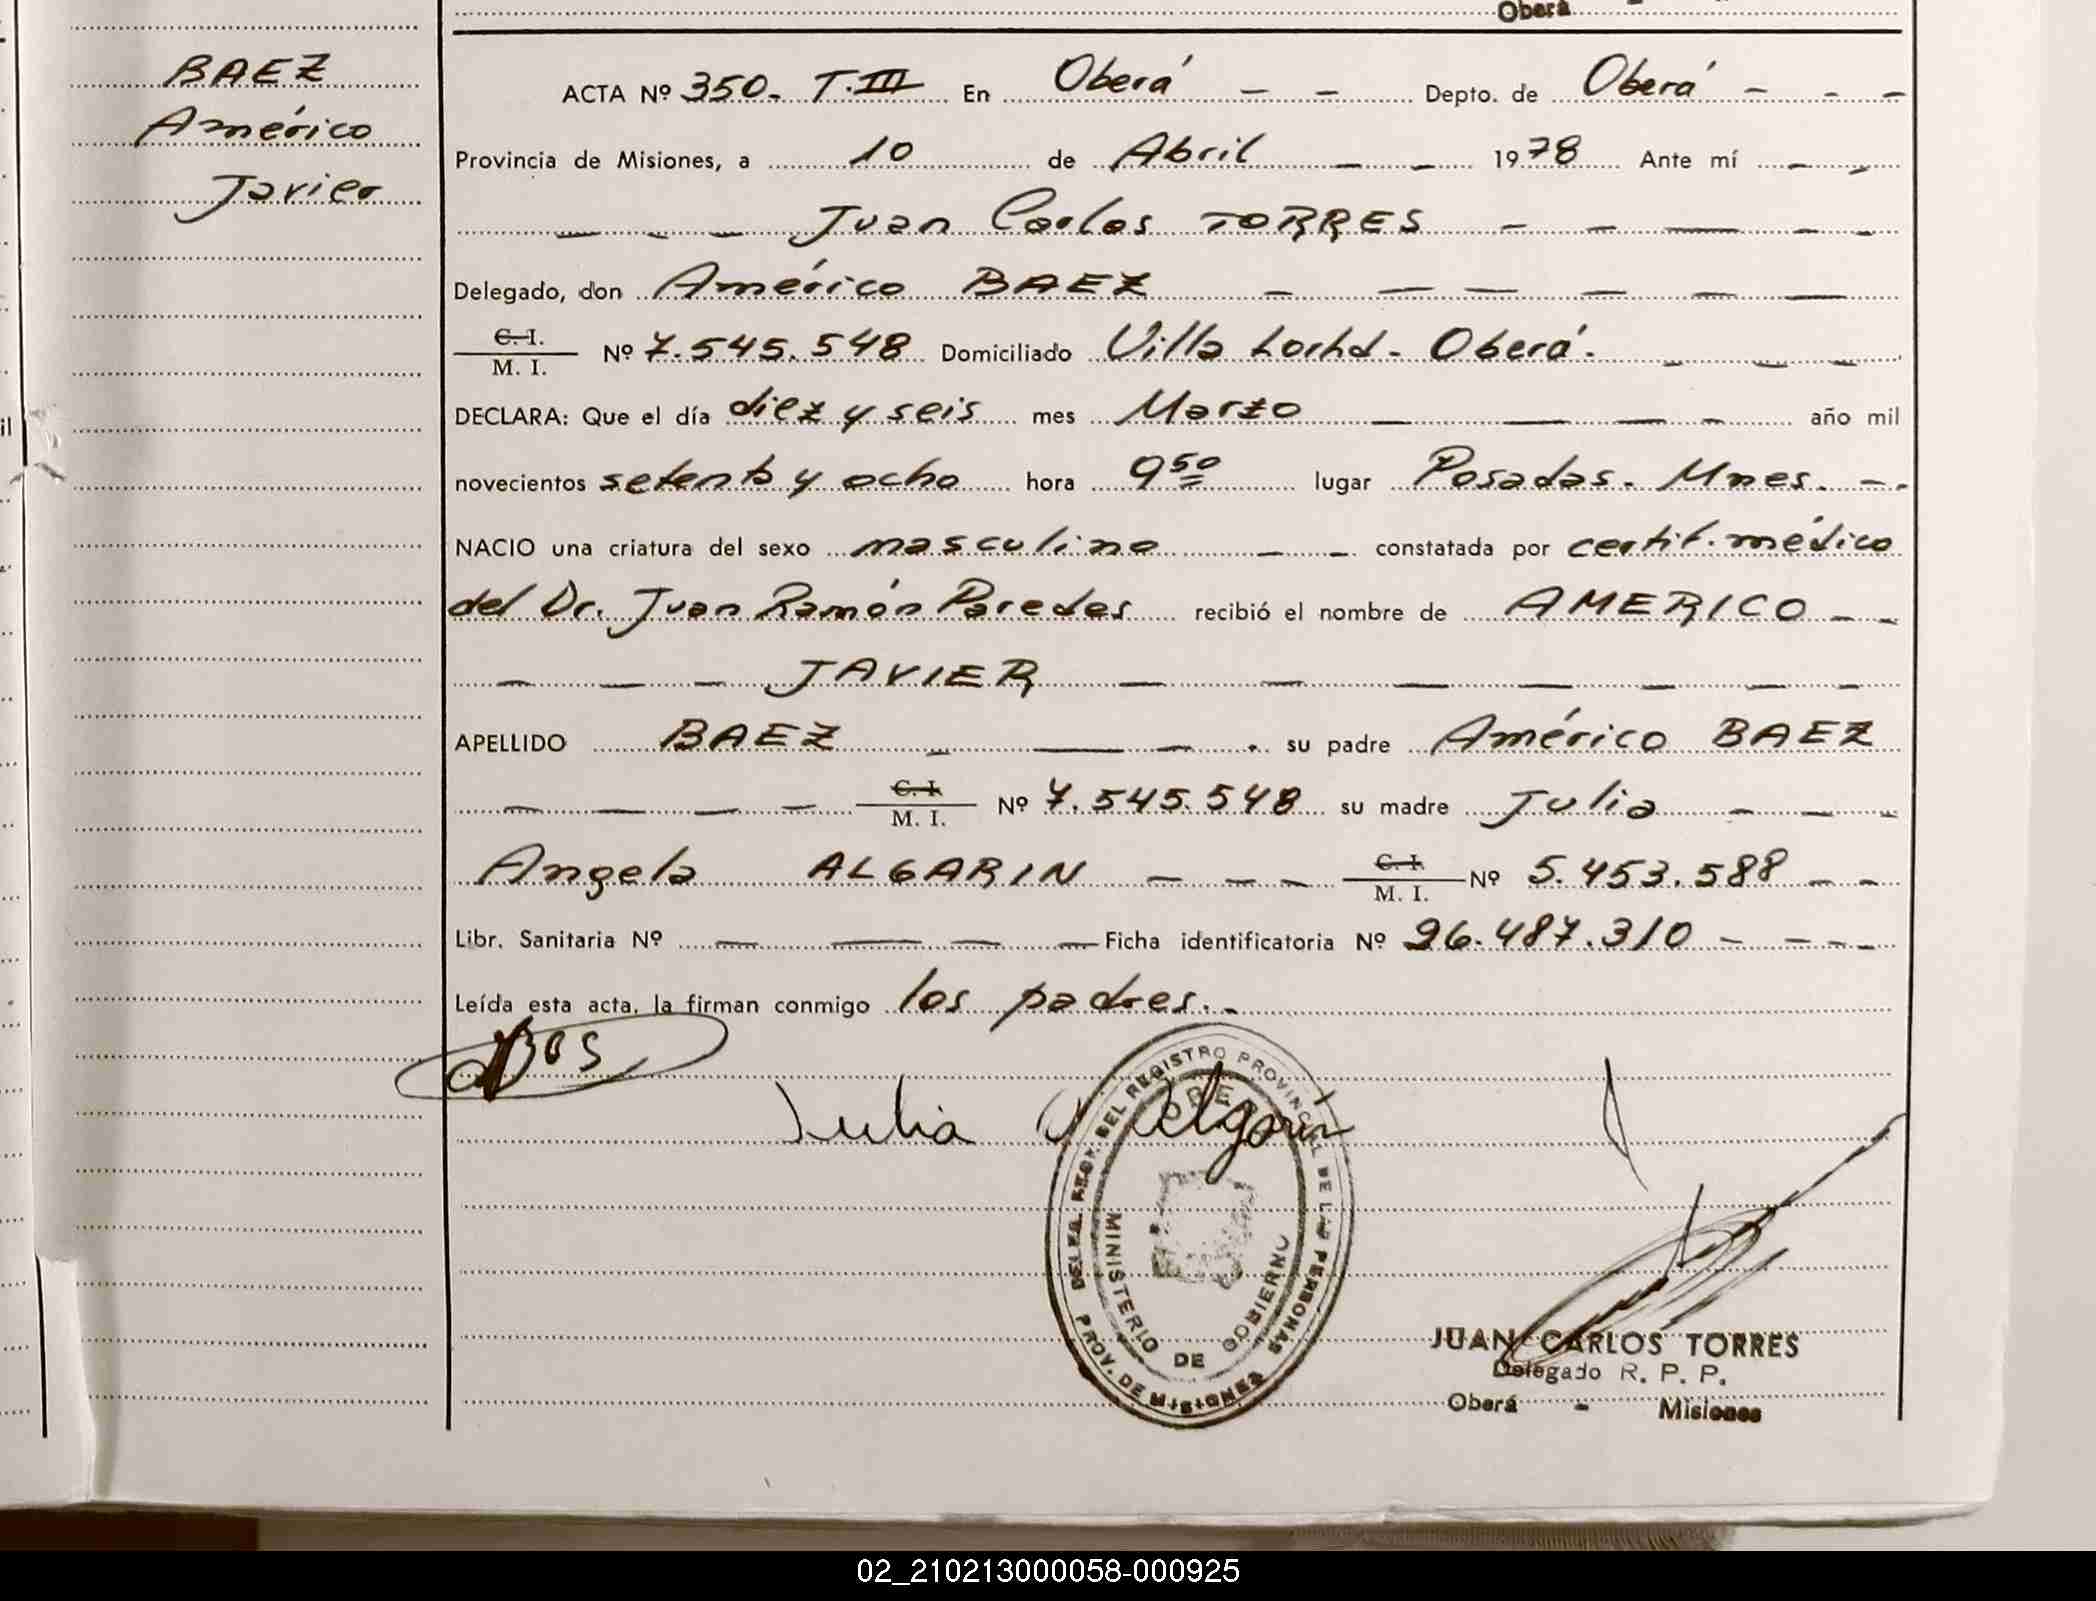 Oberá
BAEZ
Américo
Javier
ACTA Nº 350. T. III En Oberá Depto. de Oberá
Provincia de Misiones, a 10 de Abril 1978 Ante mí
Juan Carlos TORRES
Delegado, don Américo BAEZ
C. I.
M. I. Nº 7.545.548 Domiciliado Villa Oberá.
DECLARA: Que el día diez y seis mes Marzo año mil
novecientos setenta y ocho hora 9 50 lugar Posadas. Mnes.
NACIO una criatura del sexo masculino constatada por certif. médico
del Dr. Juan Ramón Paredes recibió el nombre de AMERICO
JAVIER
APELLIDO BAEZ su padre Américo BAEZ
C. I.
M. I. Nº 7.545.548 su madre Julia
Angela ALGARIN C. I.
M. I. Nº 5.453.588
Libr. Sanitaria Nº Ficha identificatoria Nº 26.487.310
Leída esta acta, la firman conmigo los padres.
Julia A Algarín
DELEG. REGN. DEL REGISTRO PROVINCIAL DE LAS PERSONAS
OBERA
MINISTERIO DE GOBIERNO
PROV. DE MISIONES
JUAN CARLOS TORRES
Delegado R. P. P.
Oberá - Misiones
02_210213000058-000925